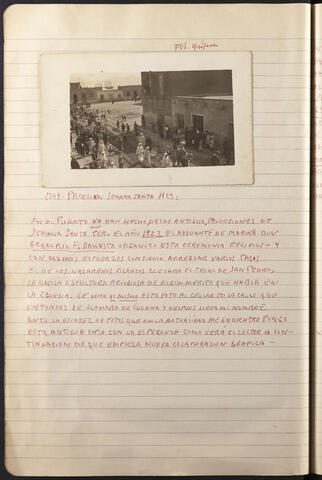 1049 - PROCESION SEMANA SANTA 1923:
EN EL PUERTO NO HAN HECHO, DESDE ANTIGUO, PROCESIONES DE
SEMANA SANTA PERO EL AÑO 1923 EL AYUDANTE DE MARINA DON
GREGORIO F. BAUESTA ORGANIZO ESTA CEREMONIA RELIGIOSA Y
CON PASADOS ESFUERZOS CONSIGUIO ARREGLAR VARIOS PASOS
EL DE LOS NAZARENOS BLANCOS LLEVABA EL TRONO DE SAN PEDRO,
LA UNICA ESCULTURA RELIGIOSA DE ALGUN MERITO QUE HABIA EN
LA IGLESIA. LE HIZO YO MISMO ESTA FOTO AL CRUZAR POR LA CALLE QUE
ENTONCES SE LLAMABA DE Y DESPUES LLEVA MI NOMBRE.
ANTE LA ESCASEZ DE FOTOS QUE EN LA ACTUALIDAD ME ENCUENTRO PONGO
ESTA ANTIGUA COPIA CON LA ESPERANZA COMO VERA EL LECTOR A CON-
TINUACION DE QUE EMPIEZA NUEVA COLABORACION GRAFICA -